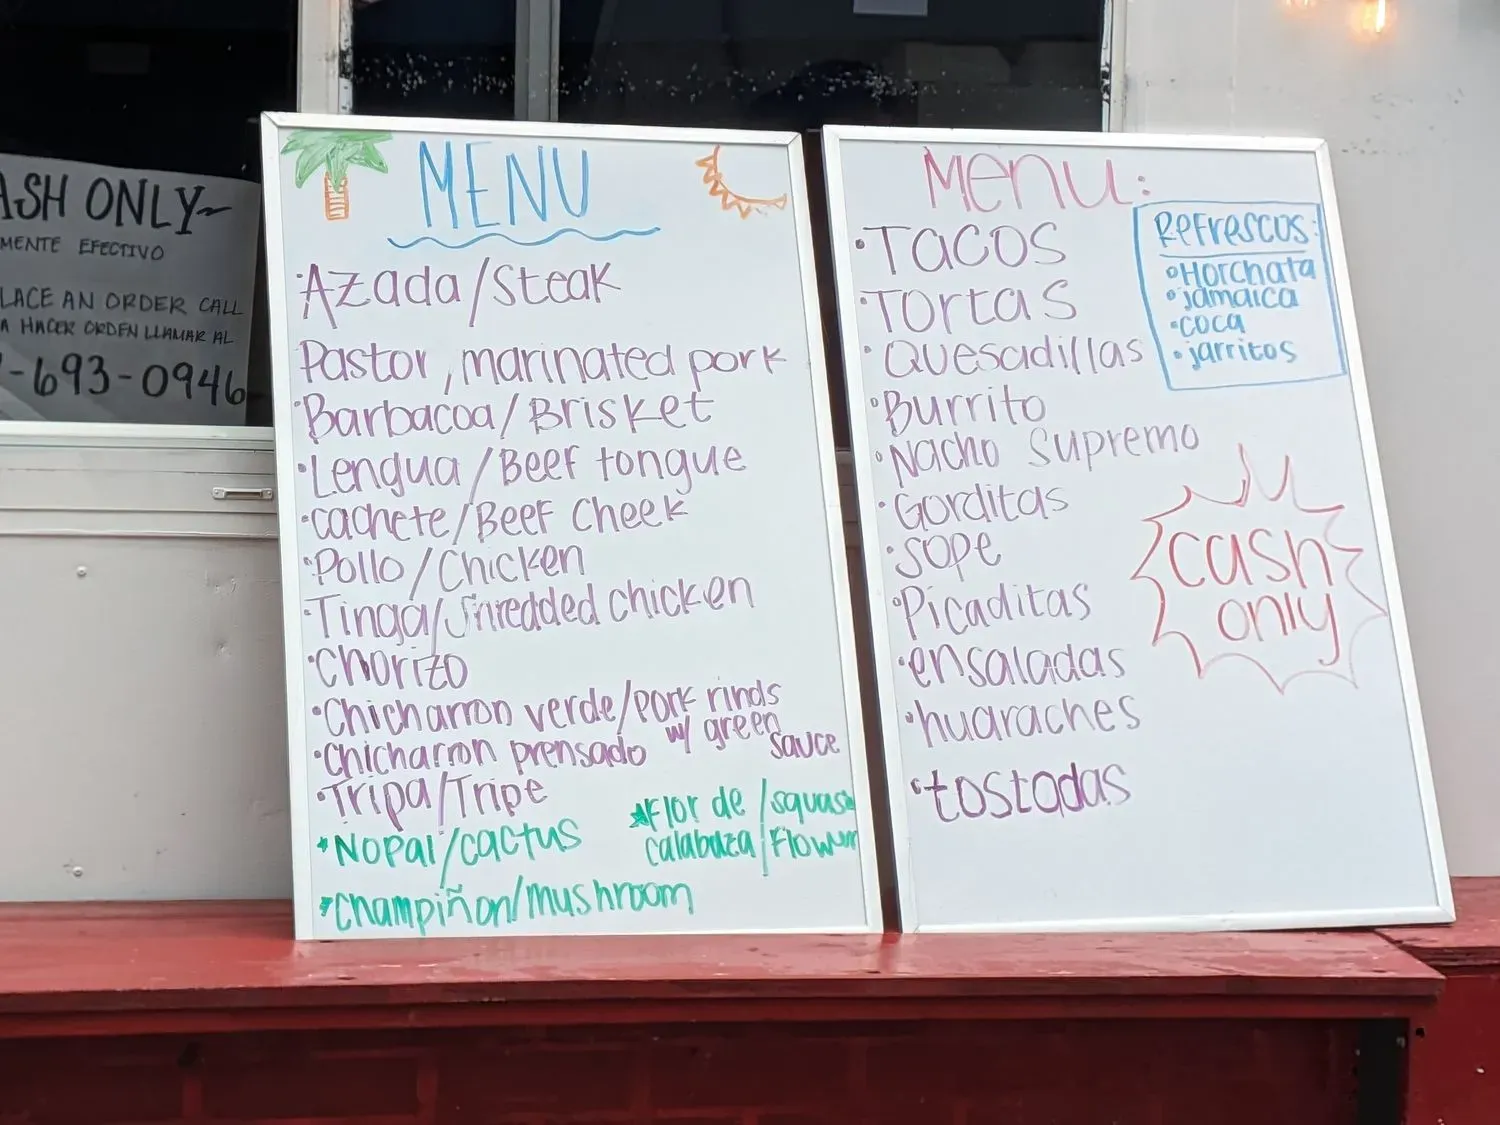 ASH ONLY~
MENTE EFECTIVO
LACE AN ORDER CALL
A HACER ORDEN LLAMAR AL
-693-0946
MENU
·Azada/Steak
Pastor, marinated pork
·Barbacoa/Brisket
·Lengua/Beef tongue
·cachete/Beef Cheek
·Pollo/Chicken
·Tinga/Shredded chicken
·Chorizo
·Chicharron verde/pork rinds
w/ green sauce
·Chicharron prensado
·Tripa/Tripe
*Nopal/cactus
*Flor de/squash
calabaza/Flower
*Champiñon/mushroom
Menu:
·Tacos
·Tortas
·Quesadillas
·Burrito
·Nacho Supremo
·Gorditas
·Sope
·Picaditas
·ensaladas
·huaraches
·tostadas
Refrescos:
·Horchata
·jamaica
·coca
·jarritos
cash
only